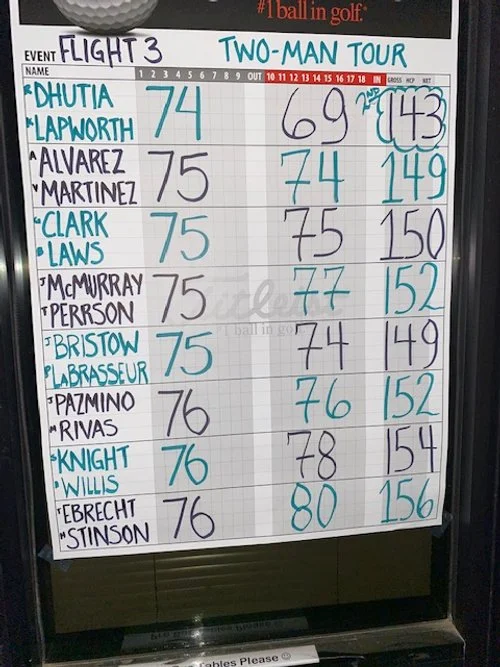 #1 ball in golf.®
EVENT FLIGHT 3 TWO-MAN TOUR
NAME 1 2 3 4 5 6 7 8 9 OUT 10 11 12 13 14 15 16 17 18 IN GROSS HCP NET
DHUTIA
LAPWORTH 74 69 2ND 143
A ALVAREZ
V MARTINEZ 75 74 149
CLARK
LAWS 75 75 150
J McMURRAY
T PERRSON 75 77 152
Titleist
#1 ball in golf
J BRISTOW
P LaBRASSEUR 75 74 149
J PAZMINO
M RIVAS 76 76 152
KNIGHT
WILLIS 76 78 154
T EBRECHT
M STINSON 76 80 156
Tables Please ☺